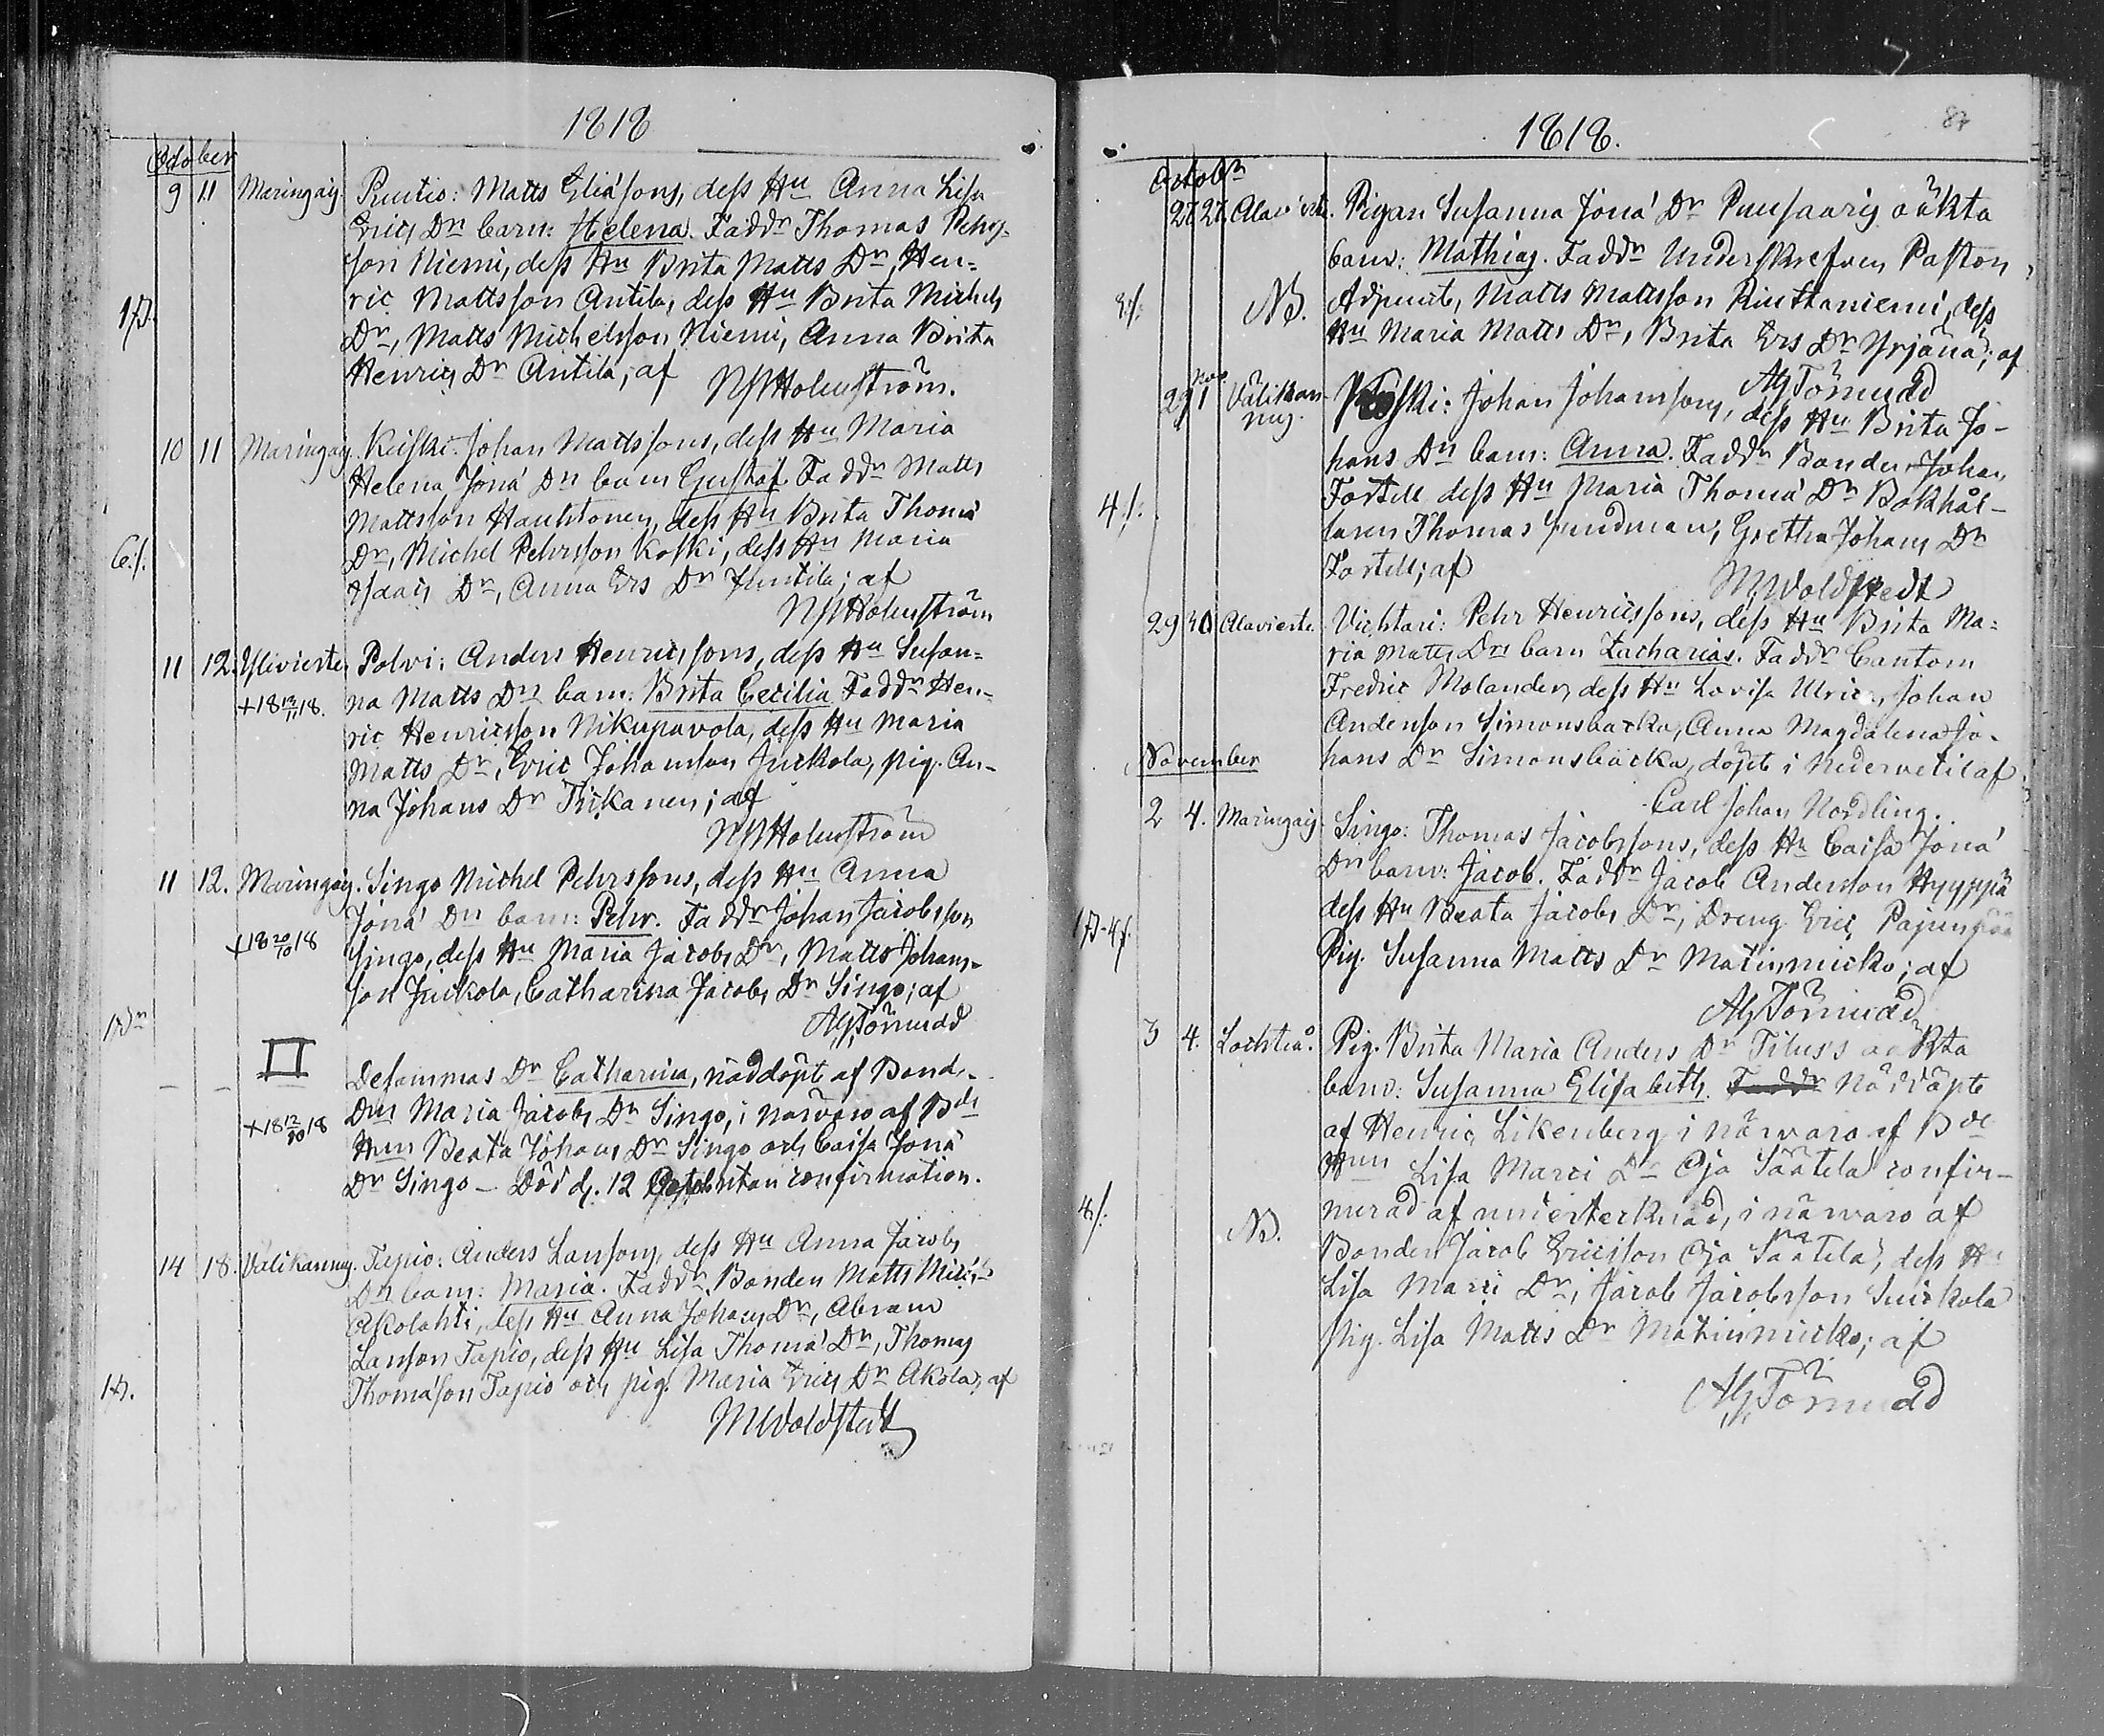 1818
October
9 11 Maringais. Ruutio: Matts Eliæsons, dess Hu Anna Lisa
Erics Dr barn: Helena. Faddr Thomas Pehrs-
son Niemi, dess Hu Brita Matts Dr, Hen-
ric Mattsson Antila, dess Hu Brita Michels
Dr, Matts Michelsson Niemi, Anna Brita
Henrics Dr Antila, af
Holmström.
10 11 Maringais. Keiski: Johan Mattssons, dess Hu Maria
Helena Jonæ Dr barn Gustaf. Faddr Matts
Mattsson Hauhtonen, dess Hu Brita Thomæ
6./.
Dr, Michel Pehrsson Koski, dess Hu Maria
Isaacs Dr, Anna Ers Dr Juntila; af
Holmström
11 12. Ylivieska Polvi: Anders Henricssons, dess Hu Susan-
+18 12/11 18.
na Matts Dr barn: Brita Cecilia. Faddr Hen-
ric Henricsson Nikupavola, dess Hu Maria
Matts Dr, Eric Johansson Juckola, pig. An-
na Johans Dr Trikanen; af
Holmström
11 12. Maringais. Singo Michel Pehrssons, dess Hu Anna
Jonæ Dr barn: Pehr. Faddr Johan Jacobsson
+18 20/10 18
Singo, dess Hu Maria Jacobs Dr, Matts Johans-
son Juckola, Catharina Jacobs Dr Singo; af
AG Törnudd
Desammas Dr Catharina, nöddöpt af Bond.
+18 12/10 18
Dr Maria Jacobs Dr Singo, i närvaro af Bds
Hun Beata Johans Dr Singo och Caisa Jonæ
Dr Singo – Död d. 12 utan confirmation.
14 18. Välikannus. Tapio: Anders Larssons, dess Hu Anna Jacobs
Dr barn: Maria. Faddr Bonden Matts
Akolahti, dess Hu Anna Johans Dr, Abram
Larsson Tapio, dess Hu Lisa Thomæ Dr, Thomas
Thomæson Tapio och pig. Maria Erics Dr Akola, af
M Woldstedt
1818.
87
Octobr
27 27. Alavieska. Pigan Susanna Jonæ Dr Puusaaris oäkta
barn: Mathias. Faddr Underskrefven Pastors
8./.
NB.
Adjunct, Matts Mattsson Riuttaniemi, dess
Hu Maria Matts Dr, Brita Ers Dr Yrjänä; af
AG Törnudd
29 Nov 1 Välikan-
nus.
Koski: Johan Johanssons, dess Hu Brita Jo-
hans Dr barn: Anna. Faddr Bonden Johan
4./.
Fortell dess Hu Maria Thomæ Dr Bokhål-
laren Thomas Sundman, Gretha Johans Dr
Fortell; af
M Woldstedt
29 30 Alavieska. Vichtari: Pehr Henricssons, dess Hu Brita Ma-
ria Matts Drs barn Zacharias. Faddr Cantorn
Fredric Molander, dess Hu Lovisa Ulrica, Johan
Andersson Simonsbacka, Anna Magdalena Jo-
hans Dr Simonsbäcka, döpt i Nedervetil af
Carl Johan Nordling.
November
2 4. Maringais. Singo: Thomas Jacobssons, dess Hu Caisa Jonæ
Dr barn: Jacob. Faddr Jacob Andersson Hyyppä
dess Hu Beata Jacobs Dr, Dreng Eric Pajunpää
Pig. Susanna Matts Dr Matinmicko; af
AG Törnudd
3 4. Lochteå. Pig. Brita Maria Anders Dr Titus's oäkta
barn: Susanna Elisabeth. Faddr Nöddöpt
af Henric Likenberg i närvaro af Bde
Hun Lisa Marci Dr Oja Säätelä confir-
4./.
NB.
merad af undertecknad, i närvaro af
Bonden Jacob Ericsson Oja Säätelä, dess Hu
Lisa Marci Dr, Jacob Jacobsson Juckola
pig. Lisa Matts Dr Matinmicko; af
AG Törnudd